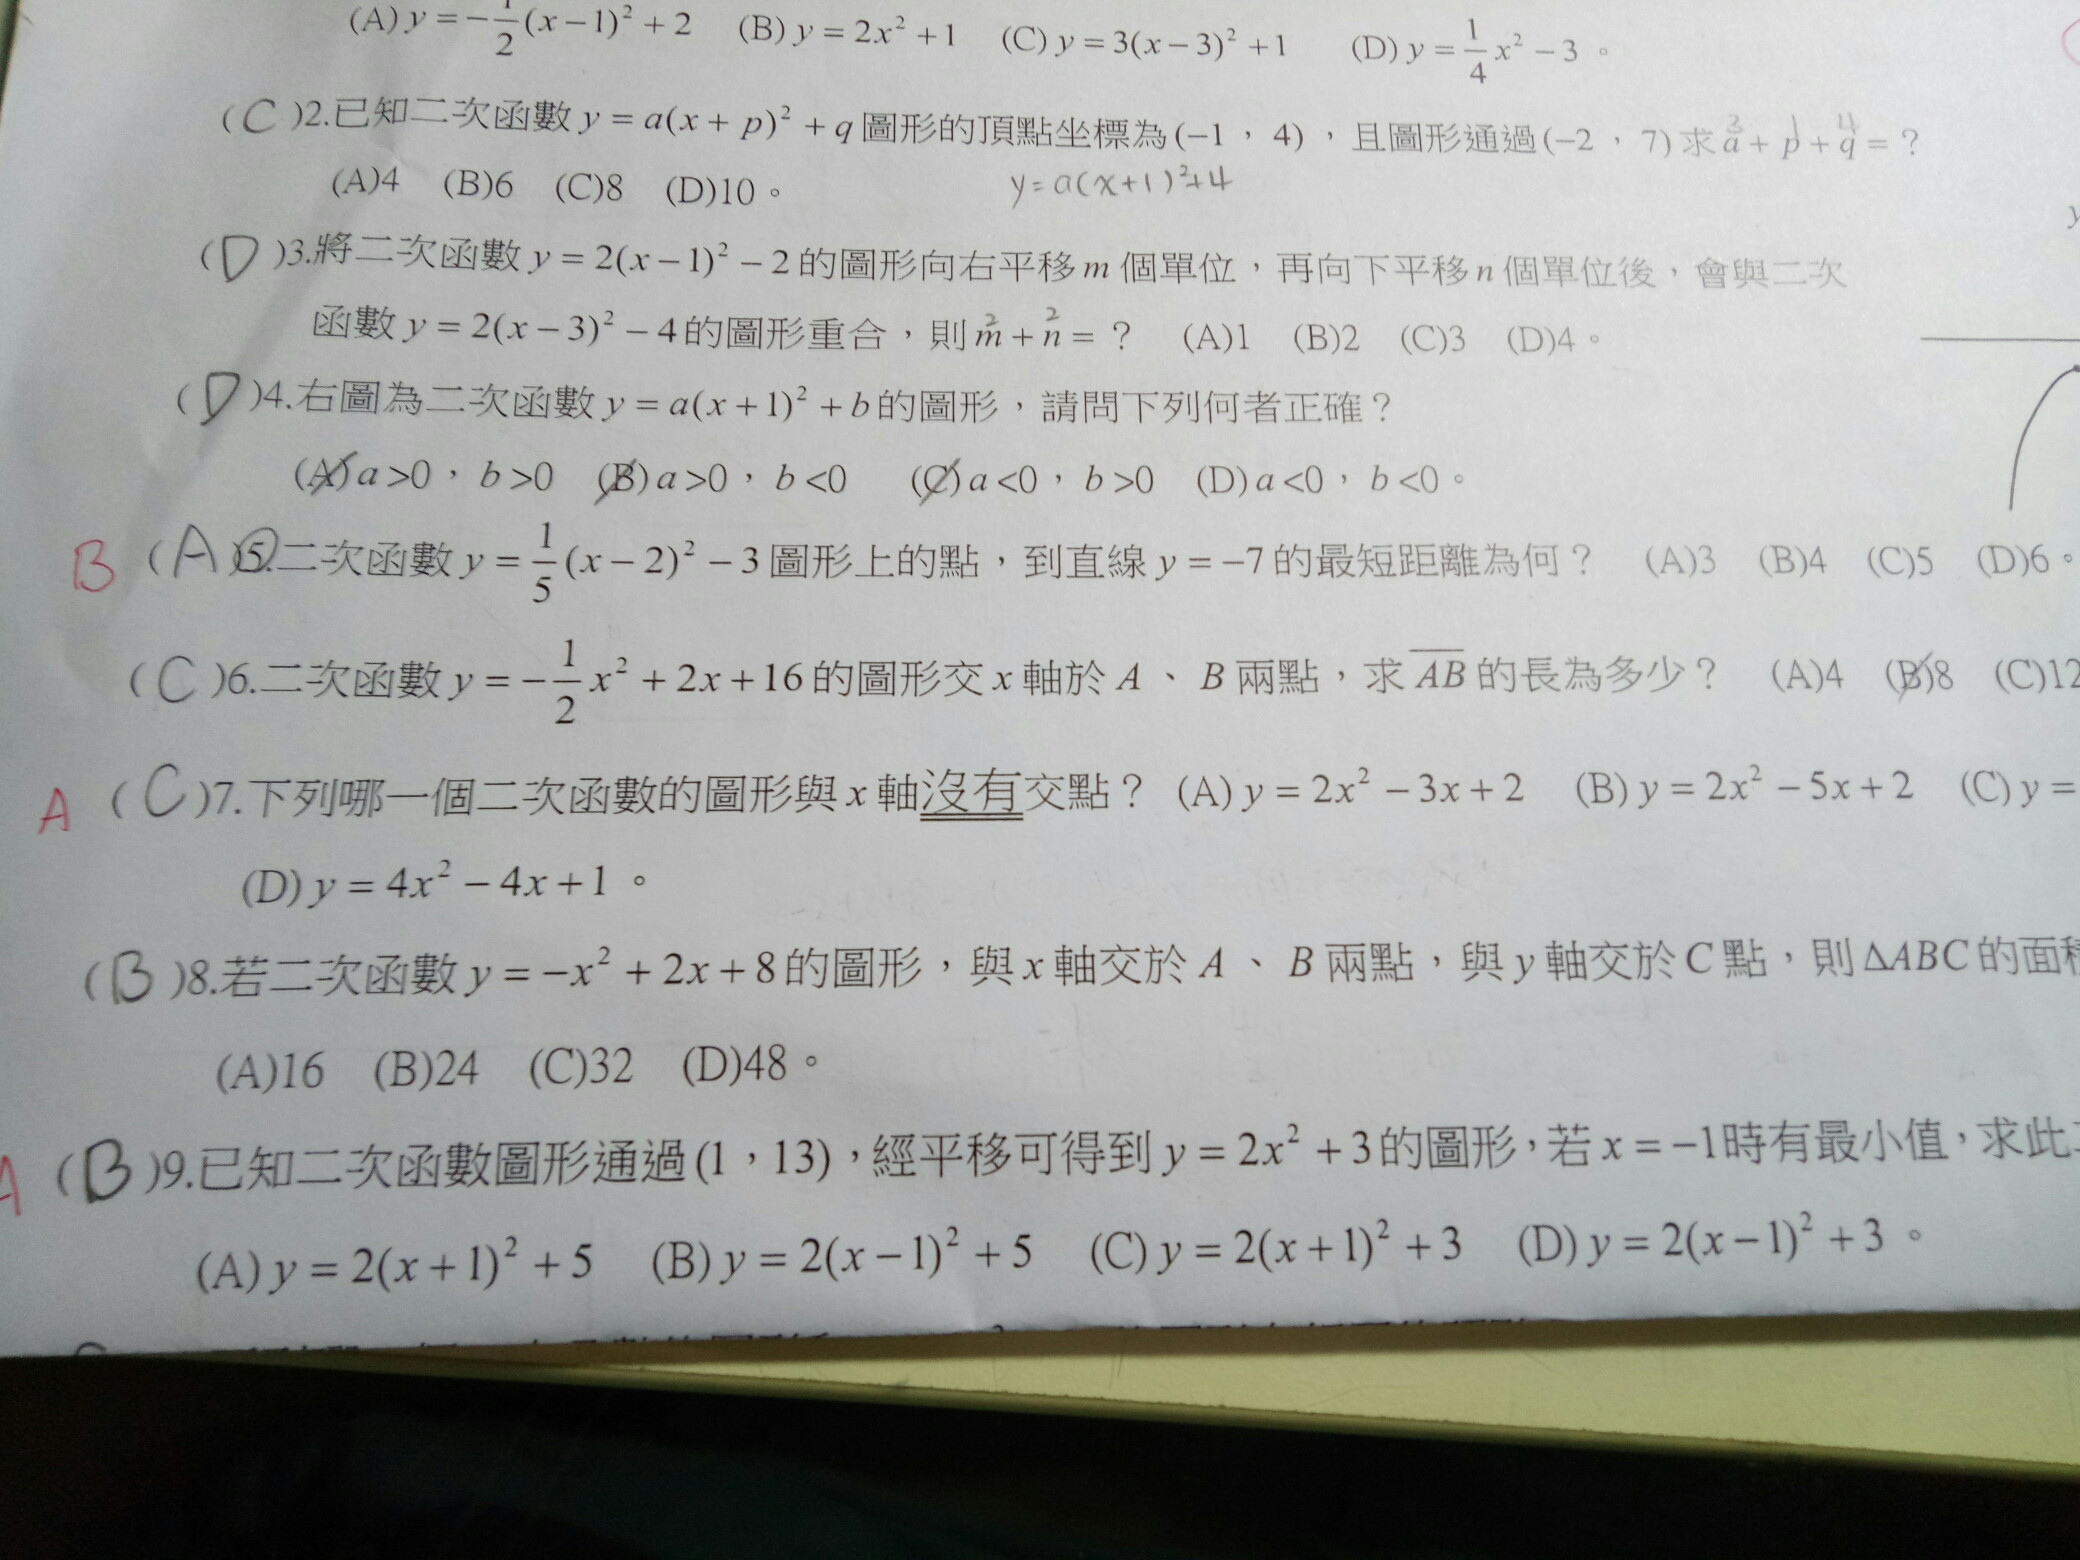 (A) y = -1/2(x-1)² + 2 (B) y = 2x² + 1 (C) y = 3(x-3)² + 1 (D) y = 1/4 x² - 3。
( C )2.已知二次函數 y = a(x + p)² + q 圖形的頂點坐標為(-1，4)，且圖形通過(-2，7)求 a + p + q = ？
3 1 4
(A)4 (B)6 (C)8 (D)10。
y=a(x+1)²+4
( D )3.將二次函數 y = 2(x-1)² - 2 的圖形向右平移 m 個單位，再向下平移 n 個單位後，會與二次
函數 y = 2(x-3)² - 4 的圖形重合，則 m + n = ？ (A)1 (B)2 (C)3 (D)4。
2 2
( D )4.右圖為二次函數 y = a(x+1)² + b 的圖形，請問下列何者正確？
(A) a >0，b >0 (B) a >0，b <0 (C) a <0，b >0 (D) a <0，b <0。
B ( A )5.二次函數 y = 1/5(x-2)² - 3 圖形上的點，到直線 y = -7 的最短距離為何？ (A)3 (B)4 (C)5 (D)6。
( C )6.二次函數 y = -1/2 x² + 2x + 16 的圖形交 x 軸於 A、B 兩點，求 AB 的長為多少？ (A)4 (B)8 (C)12
A ( C )7.下列哪一個二次函數的圖形與 x 軸沒有交點？ (A) y = 2x² - 3x + 2 (B) y = 2x² - 5x + 2 (C) y =
(D) y = 4x² - 4x + 1。
( B )8.若二次函數 y = -x² + 2x + 8 的圖形，與 x 軸交於 A、B 兩點，與 y 軸交於 C 點，則 ΔABC 的面積
(A)16 (B)24 (C)32 (D)48。
A ( B )9.已知二次函數圖形通過(1，13)，經平移可得到 y = 2x² + 3 的圖形，若 x = -1時有最小值，求此
(A) y = 2(x+1)² + 5 (B) y = 2(x-1)² + 5 (C) y = 2(x+1)² + 3 (D) y = 2(x-1)² + 3。